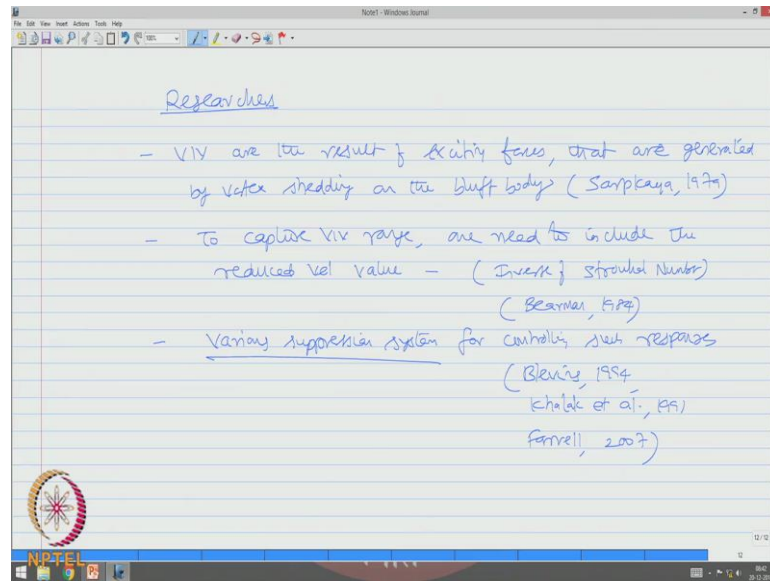 Note1 - Windows Journal
File Edit View Insert Actions Tools Help
Researches
- VIV are the result of exciting forces, that are generated
by vortex shedding on the bluff body (Sarpkaya, 1979)
- To capture VIV range, one need to include the
reduced vel value - (Inverse of Strouhal Number)
(Bearman, 1984)
- Various suppression system for controlling such responses
(Blevins, 1994
Khalak et al., 1991
Farrell, 2007)
12/12
12
NPTEL
0642